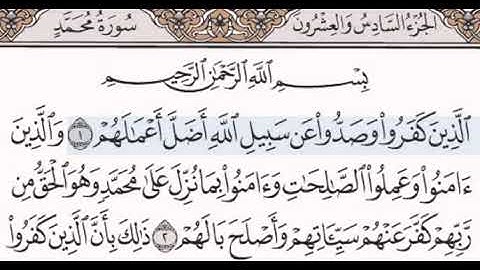 الجزء السادس والعشرون سورة محمد
بِسْمِ ٱللَّهِ ٱلرَّحْمَٰنِ ٱلرَّحِيمِ
ٱلَّذِينَ كَفَرُوا۟ وَصَدُّوا۟ عَن سَبِيلِ ٱللَّهِ أَضَلَّ أَعْمَٰلَهُمْ ١ وَٱلَّذِينَ
ءَامَنُوا۟ وَعَمِلُوا۟ ٱلصَّٰلِحَٰتِ وَءَامَنُوا۟ بِمَا نُزِّلَ عَلَىٰ مُحَمَّدٍ وَهُوَ ٱلْحَقُّ مِن
رَّبِّهِمْ كَفَّرَ عَنْهُمْ سَيِّـَٔاتِهِمْ وَأَصْلَحَ بَالَهُمْ ٢ ذَٰلِكَ بِأَنَّ ٱلَّذِينَ كَفَرُوا۟